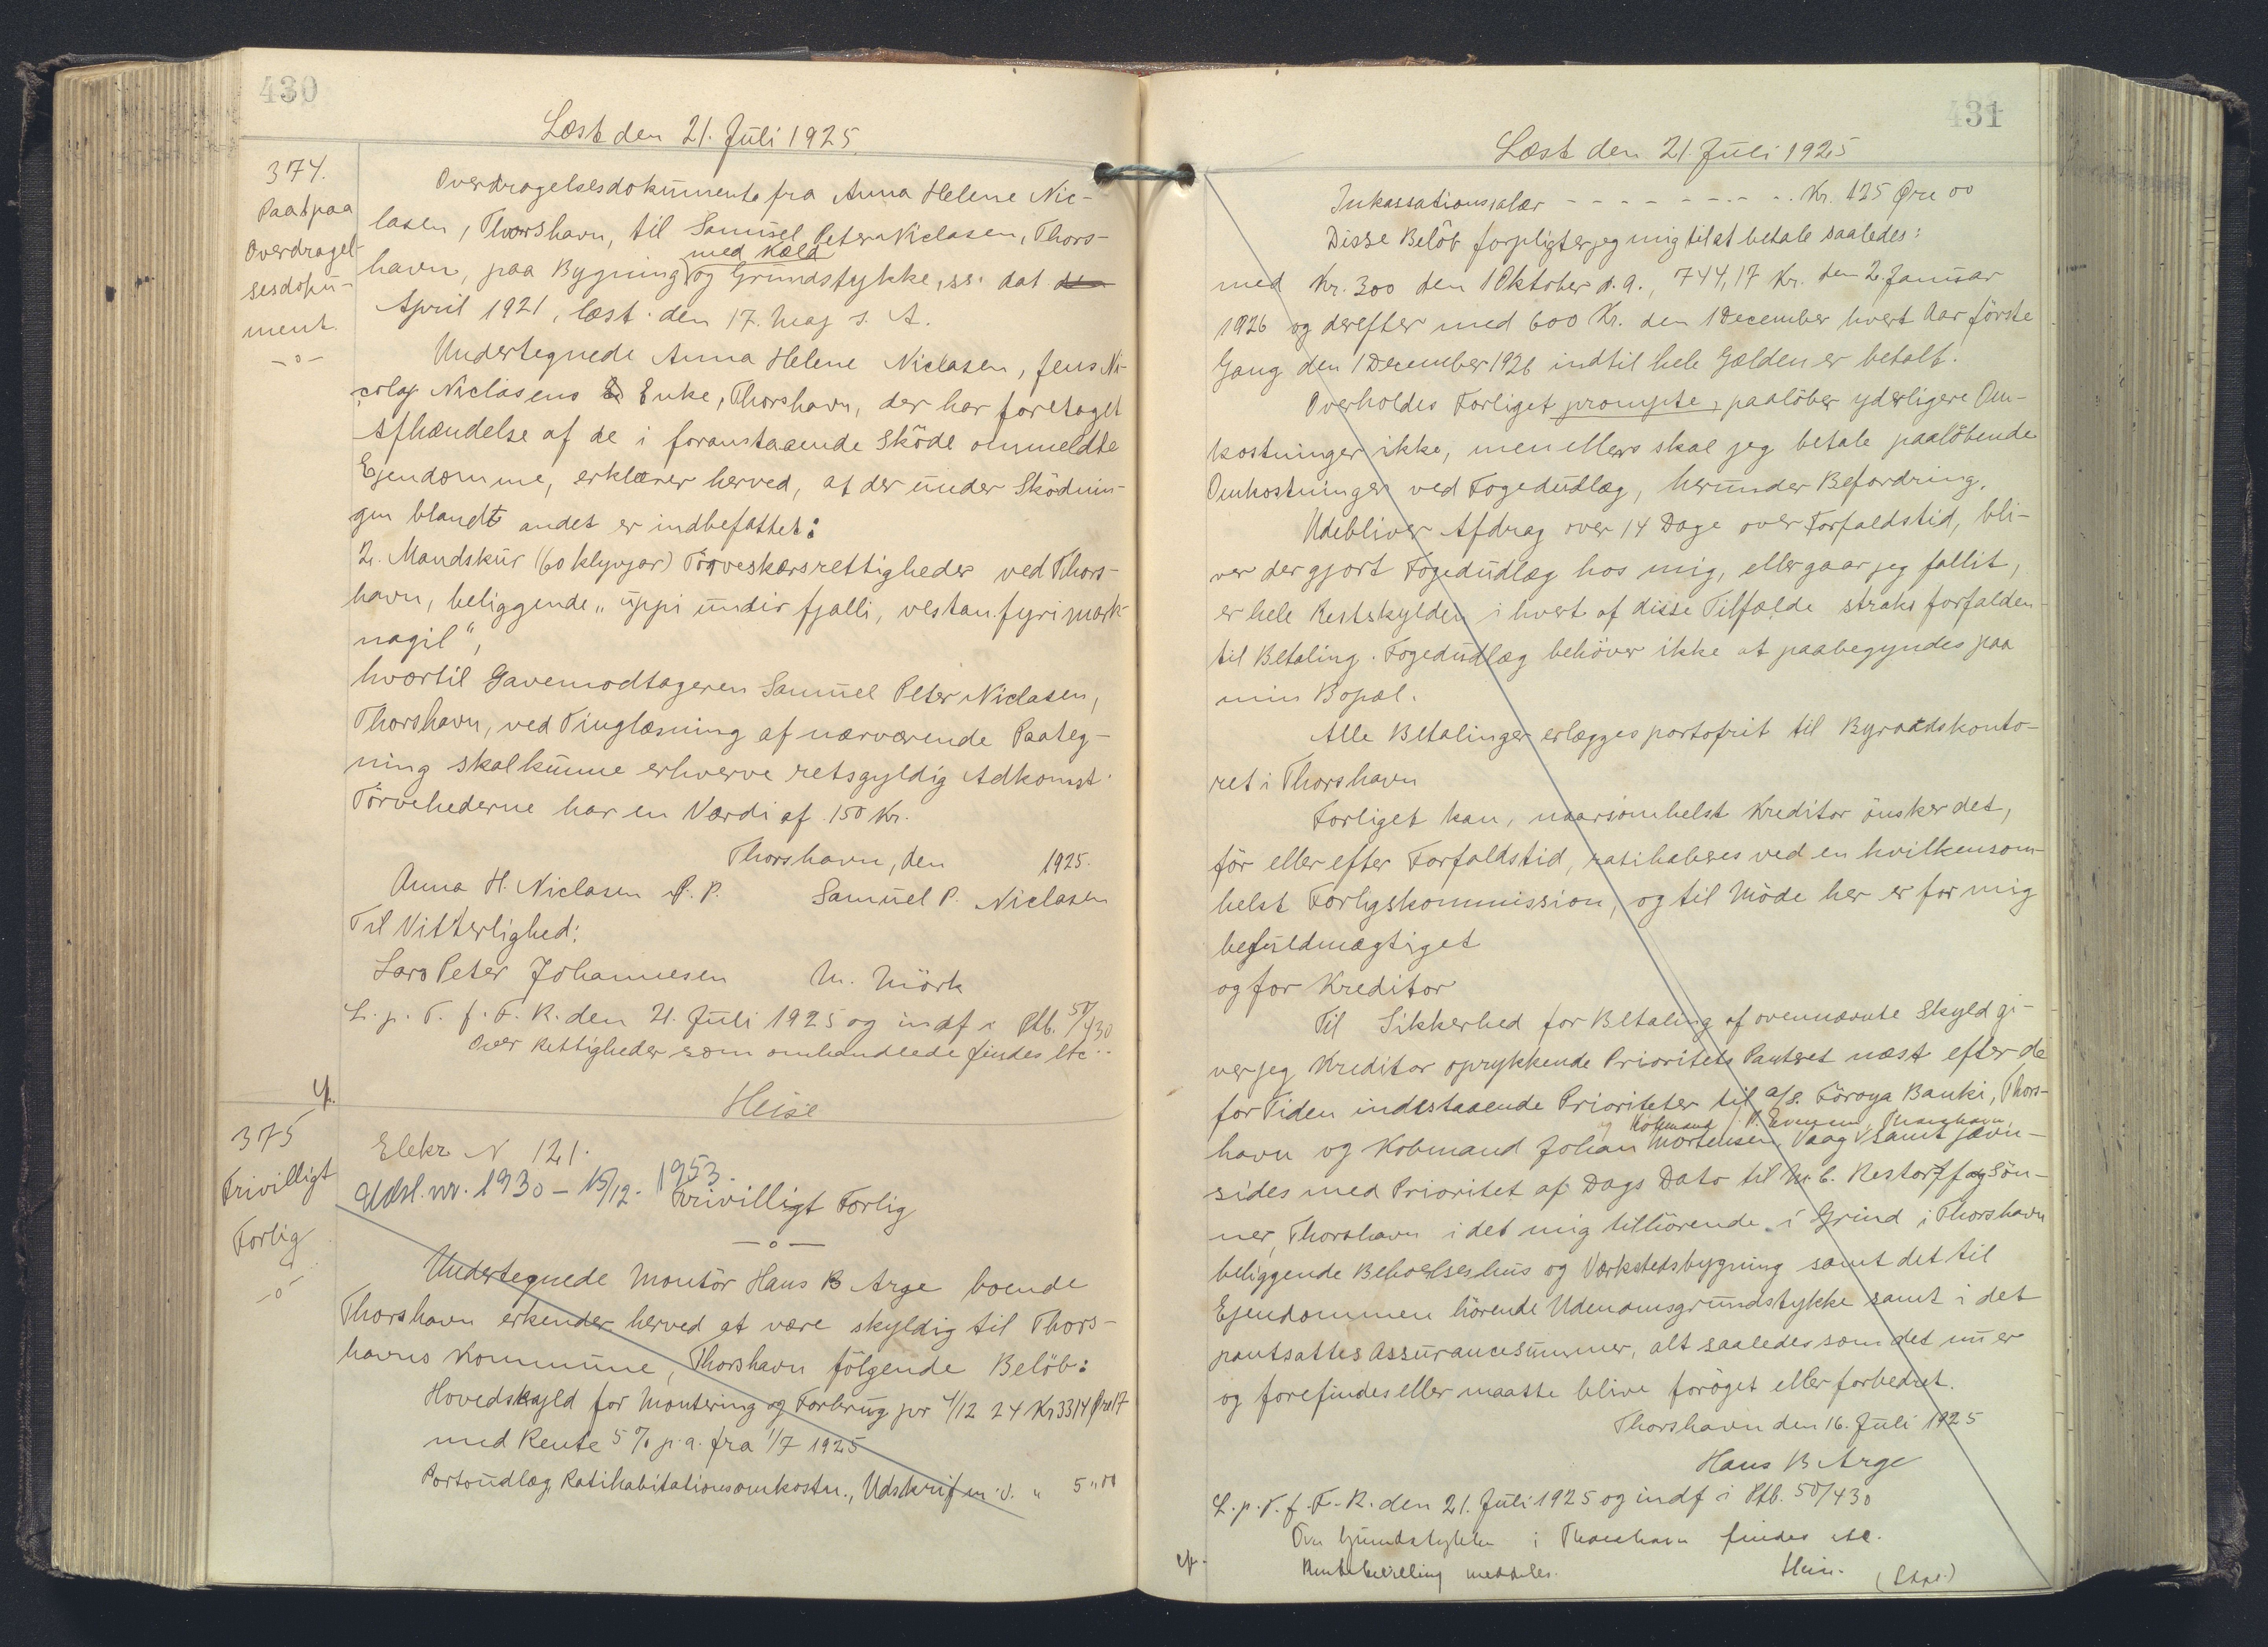 430
Læst den 21. Juli 1925
374.
Paatpaa
Overdragel-
sesdoku-
ment.
-o-
Overdragelsesdokument fra Anna Helene Nic-
lasen, Thorshavn, til Samuel Peter Niclasen, Thors-
med Kæld
havn, paa Bygning og Grundstykke, ss. dat. den
April 1921, læst den 17. Maj s. A.
Undertegnede Anna Helene Niclasen, Jens Ni-
colaj Niclasens Enke, Thorshavn, der har foretaget
Afhændelse af de i foranstaaende Sköde ommeldte
Ejendomme, erklærer herved, at der under Sködnin-
gen blandt andet er indbefattet:
2. Mandskur (60 klyvjar) Törveskærsrettigheder ved Thors-
havn, beliggende „uppi undir fjalli, vestan fyri mark-
nagil",
hvortil Gavemodtageren Samuel Peter Niclasen,
Thorshavn, ved Tinglæsning af nærværende Paateg-
ning skal kunne erhverve retsgyldig Adkomst.
Törvehederne har en Værdi af 150 Kr.
Thorshavn, den 1925.
Anna H. Niclasen P. P. Samuel P. Niclasen
Til Vitterlighed:
Lars Peter Johannesen M. Mörk
L. p. T. f. F. R. den 21. Juli 1925 og indf i Ptb. 50/430
Over Rettigheder som omhandlede findes etc..
Heise
375
Frivilligt
Forlig
-o-
Elekr N 121.
Udsl. nr. 1930 - 15/12. 1953.
Frivilligt Forlig
-o-
Undertegnede Montör Hans B Arge boende
Thorshavn erkender herved at være skyldig til Thors-
havns Kommune, Thorshavn fölgende Belöb:
Hovedskyld for Montering og Forbrug pr 1/12 24 Kr 3314 Øre 17
med Rente 5 % p.a. fra 1/7 1925
Portoudlæg, Ratihabitationsomkostn., Udskrift m.v. „ 5 „ 00
431
Læst den 21. Juli 1925
Inkassationssalær - - - - - - - - Kr. 125 Øre 00
Disse Belöb forpligter jeg mig til at betale saaledes:
med Kr. 300 den 1 Oktober d. a., 744,17 Kr. den 2. Januar
1926 og derefter med 600 Kr. den 1 December hvert Aar förste
Gang den 1 December 1926 indtil hele Gælden er betalt.
Overholdes Forliget prompte, paalöber yderligere Om-
kostninger ikke, men ellers skal jeg betale paalöbende
Omkostninger ved Fogedudlæg, herunder Befordring.
Udebliver Afdrag over 14 Dage over Forfaldstid, bli-
ver der gjort Fogedudlæg hos mig, eller gaar jeg fallit,
er hele Restskylden i hvert af disse Tilfælde straks forfalden
til Betaling. Fogedudlæg behöver ikke at paabegyndes paa
min Bopæl.
Alle Betalinger erlægges portofrit til Byraadskonto-
ret i Thorshavn
Forliget kan, naarsomhelst Kreditor önsker det,
för eller efter Forfaldstid, ratihaberes ved en hvilkensom-
helst Forligskommission, og til Möde her er for mig
befuldmægtiget
og for Kreditor
Til Sikkerhed for Betaling af ovennævnte Skyld gi-
ver jeg Kreditor oprykkende Prioritets Panteret næst efter de
for Tiden indestaaende Prioriteter til a/s. Föroya Banki, Thors-
og Købmand Thorshavn,
havn og Kobmand Johan Mortensen, Vaag samt jævn-
sides med Prioritet af Dags Dato til M. C. Restorff og Sön-
ner, Thorshavn i det mig tilhörende i Grind i Thorshavn
beliggende Beboelseshus og Værkstedsbygning samt det til
Ejendommen hörende Udenomsgrundstykke samt i det
pantsattes Assurancesummer, alt saaledes som det nu er
og forefindes eller maatte blive foröget eller forbedret.
Thorshavn den 16. Juli 1925
Hans B Arge
L. p. T. f. F. R. den 21. Juli 1925 og indf i Ptb. 50/430
Over Grundstykker i Thorshavn findes etc.
meddeles. Heise.